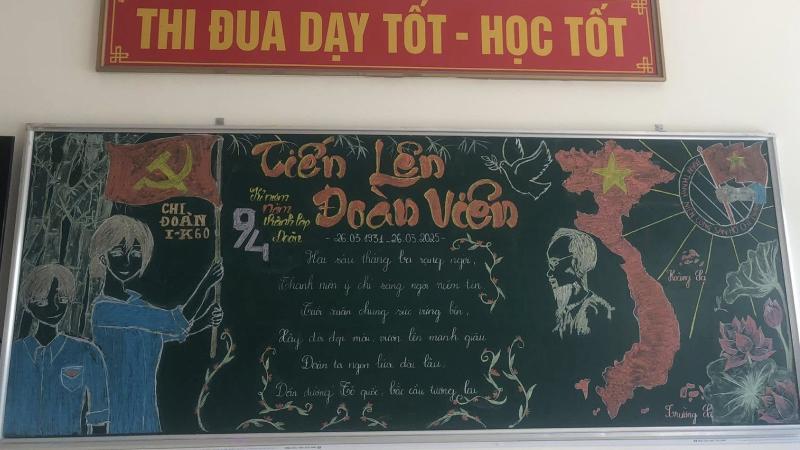 THI ĐUA DẠY TỐT - HỌC TỐT
CHI
ĐOÀN
I-K60
Tiến Lên
Đoàn Viên
Kỉ niệm
94
năm
thành lập
Đoàn
- 26.03.1931 - 26.03.2025 -
Hai sáu tháng ba rạng ngời,
Thanh niên ý chí sáng ngời niềm tin
Tuổi xuân chung sức vững bền,
Xây đời đẹp mãi, vươn lên mạnh giàu
Đoàn ta ngọn lửa dài lâu,
Dẫn đường Tổ quốc, bắc cầu tương lai
Hoàng Sa
Trường Sa